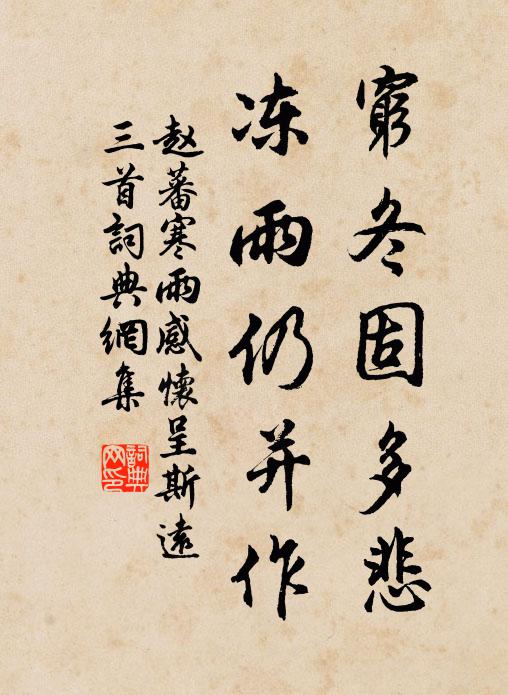 窮冬固多悲
冻雨仍并作
赵蕃寒雨感懷呈斯遠
三首詞典網集
詞典网印